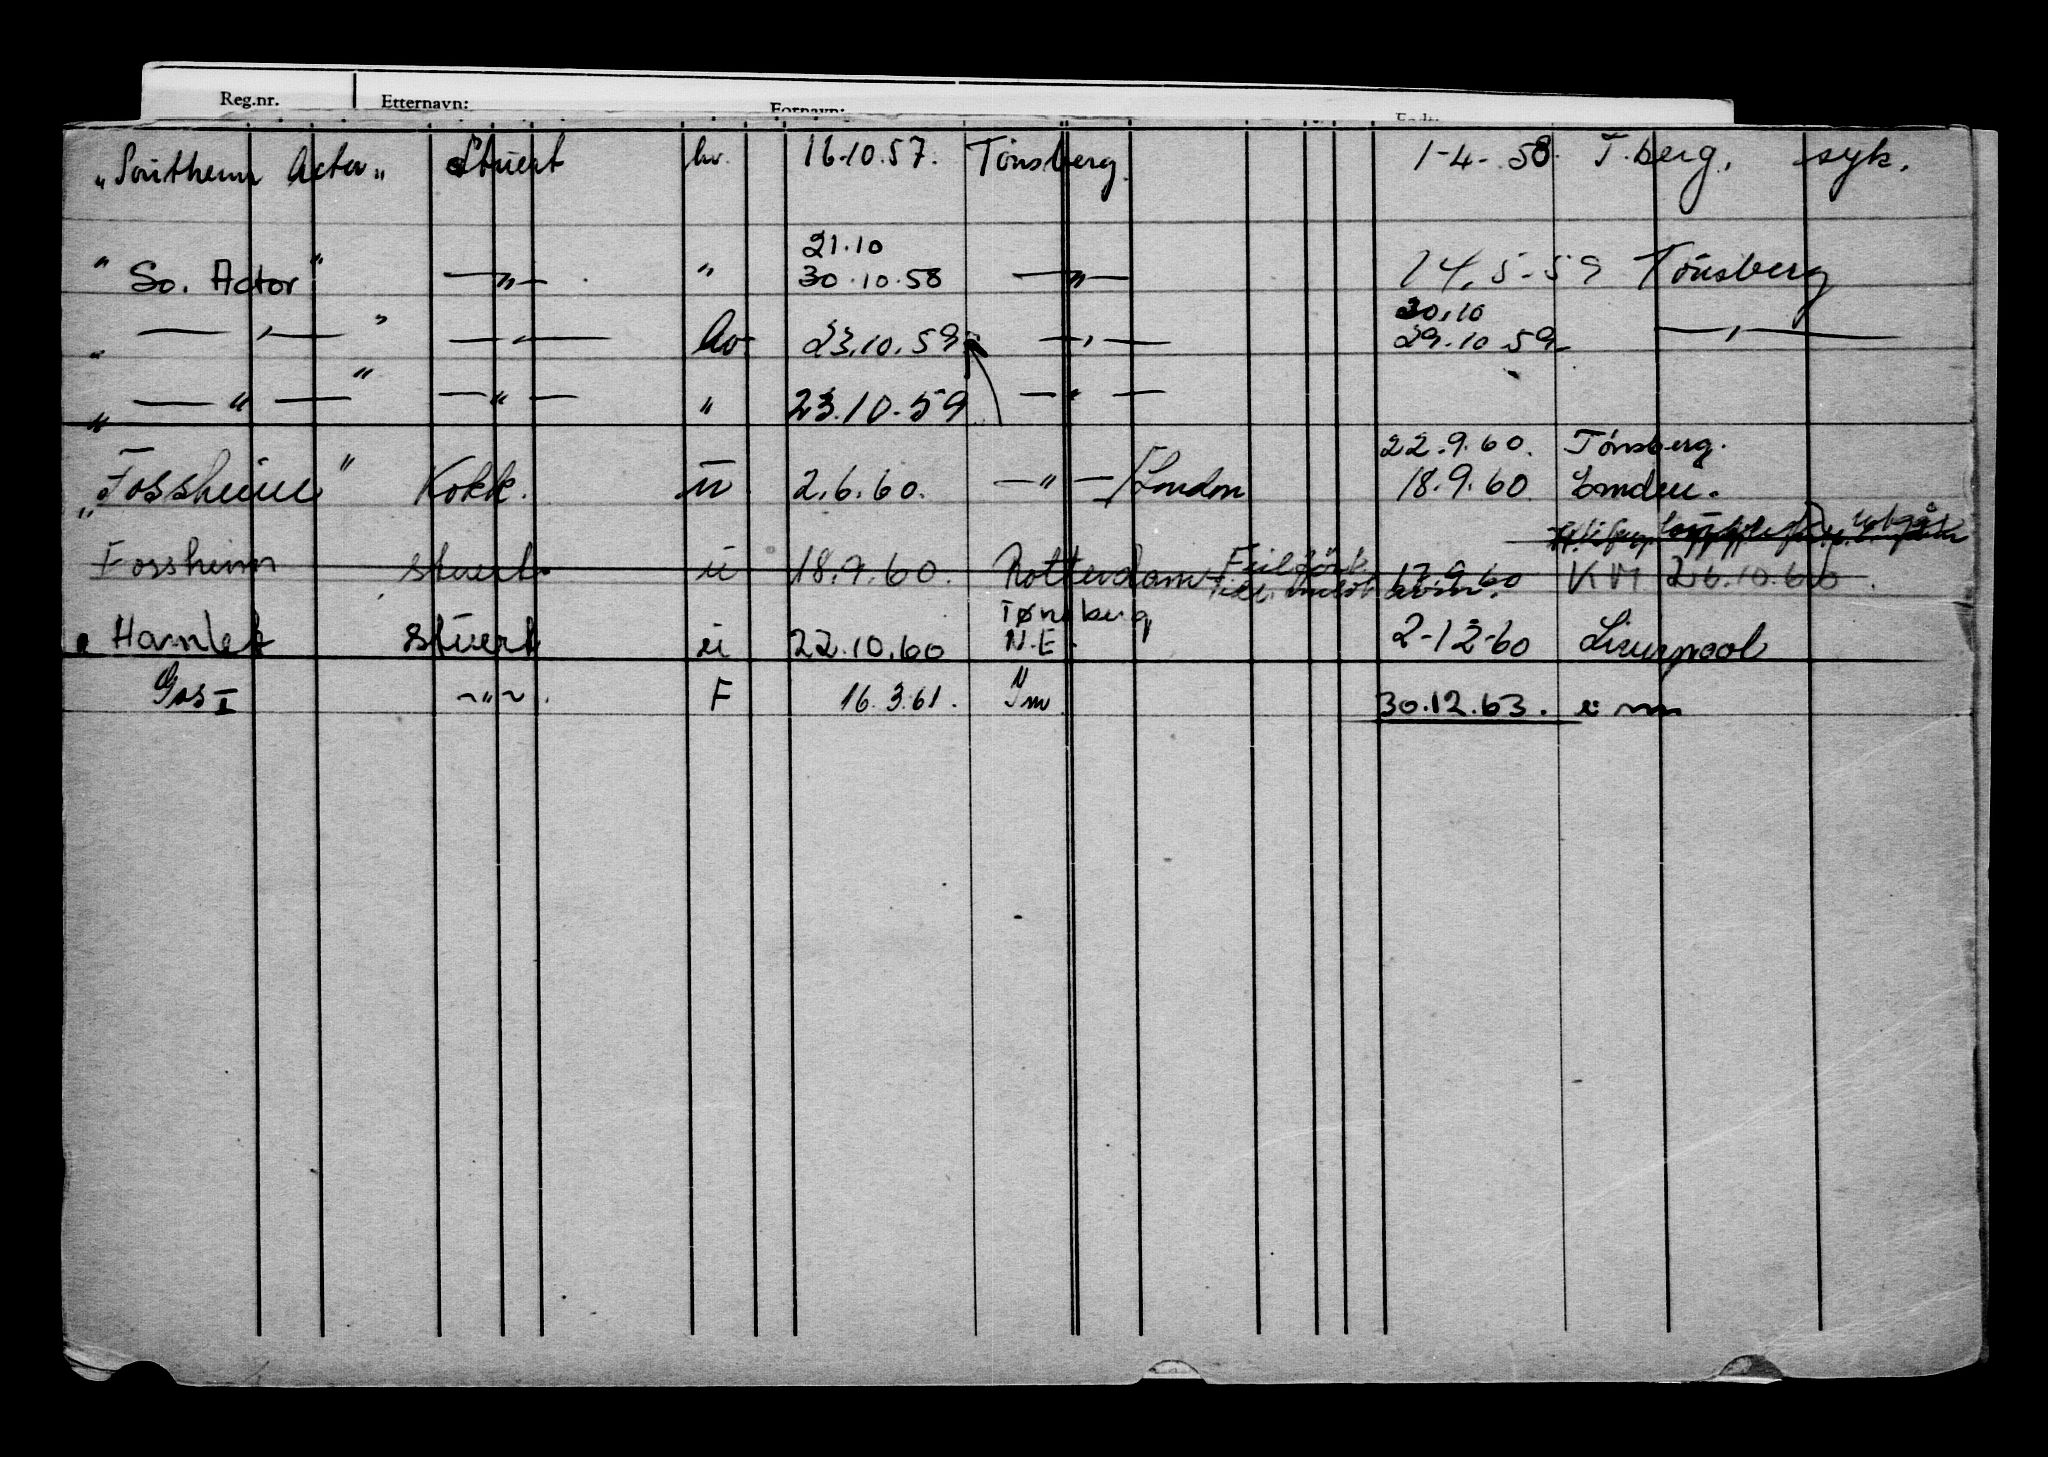 Reg.nr. Etternavn: Fornavn:
„Southern Actor„ Stuert hv. 16-10.57. Tönsberg. 1-4-58. T.berg, syk.
21.10
"So. Actor" —"— " 30.10.58 —"— 14.5-59 Tönsberg
30.10
" —"— " —"— hv 23.10.59 —"— 29.10.59 —"—
" —"— " —"— " 23.10.59 —"—
22.9.60. Tönsberg.
„Fossheim" Kokk. ū 2.6.60. —"—/London 18.9.60 Emden.
Fossheim stuert ū 18.9.60. Rotterdam 17.9.60 KM 26.10.60.
Tønsberg
"Hamlet stuert ū 22.10.60 N.E. 2-12-60 Liverpool
Gos I ~"~. F 16.3.61. 30.12.63.